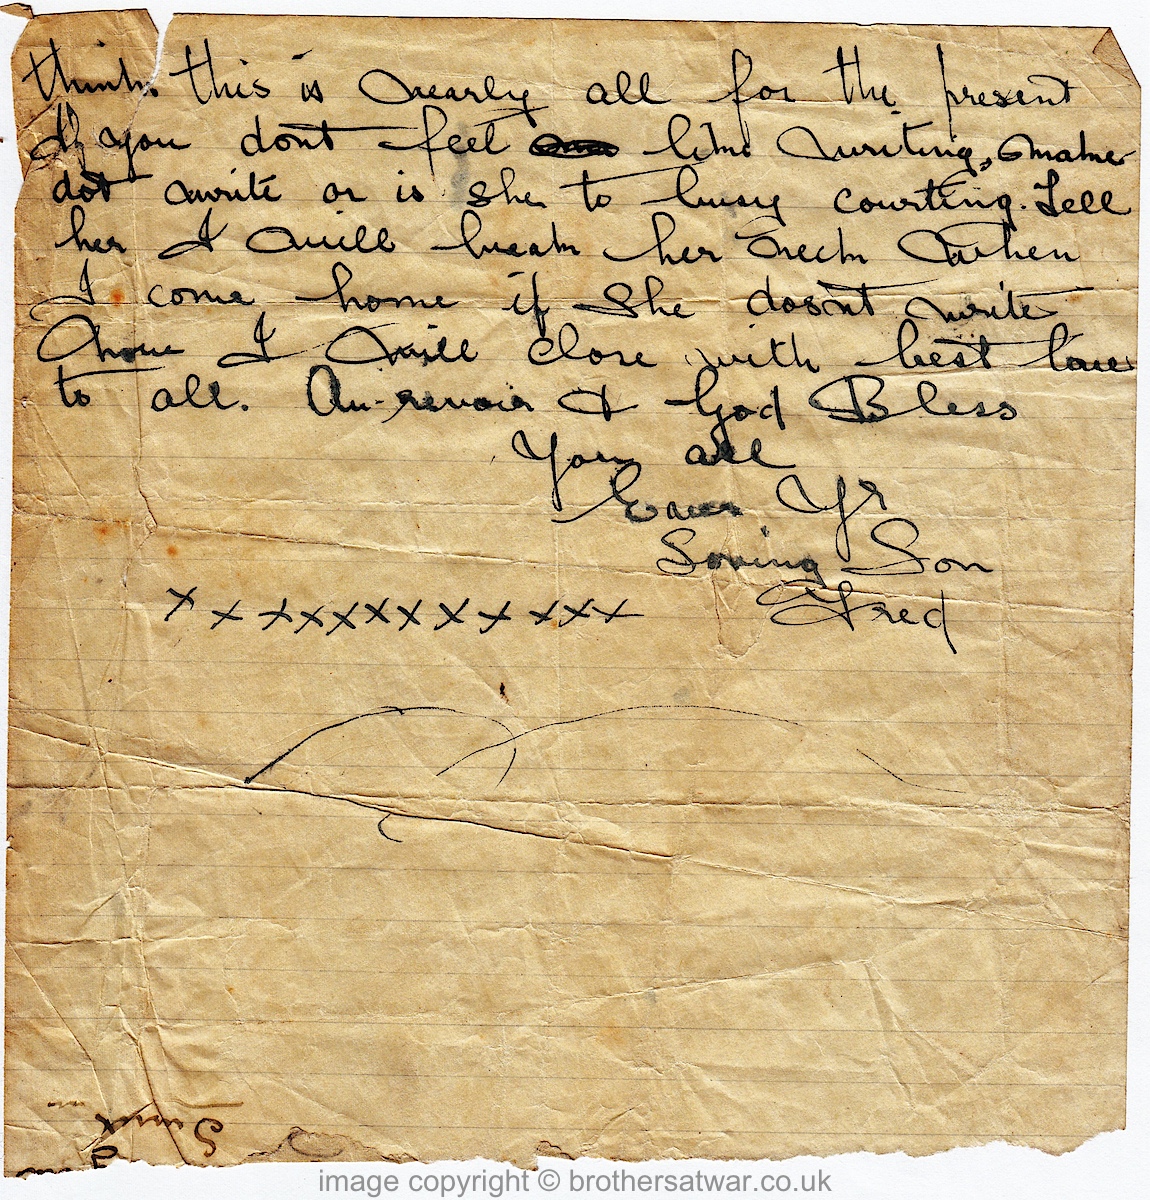 think this is nearly all for the present
If you dont feel like writing, make
dot write or is she to busy courting. Tell
her I will break her neck when
I come home if she dosnt write
I will close with best love
to all. Au-revoir & God Bless
You all
Ever Yr
Loving Son
x x x x x x x x x x x x Fred
image copyright © brothersatwar.co.uk